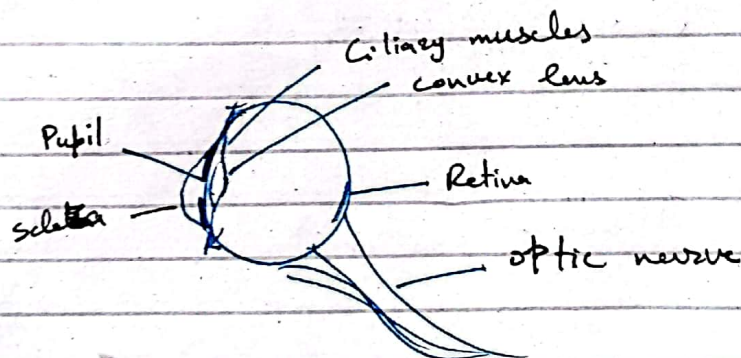 Ciliary muscles
convex lens
Pupil
Retina
optic nerve